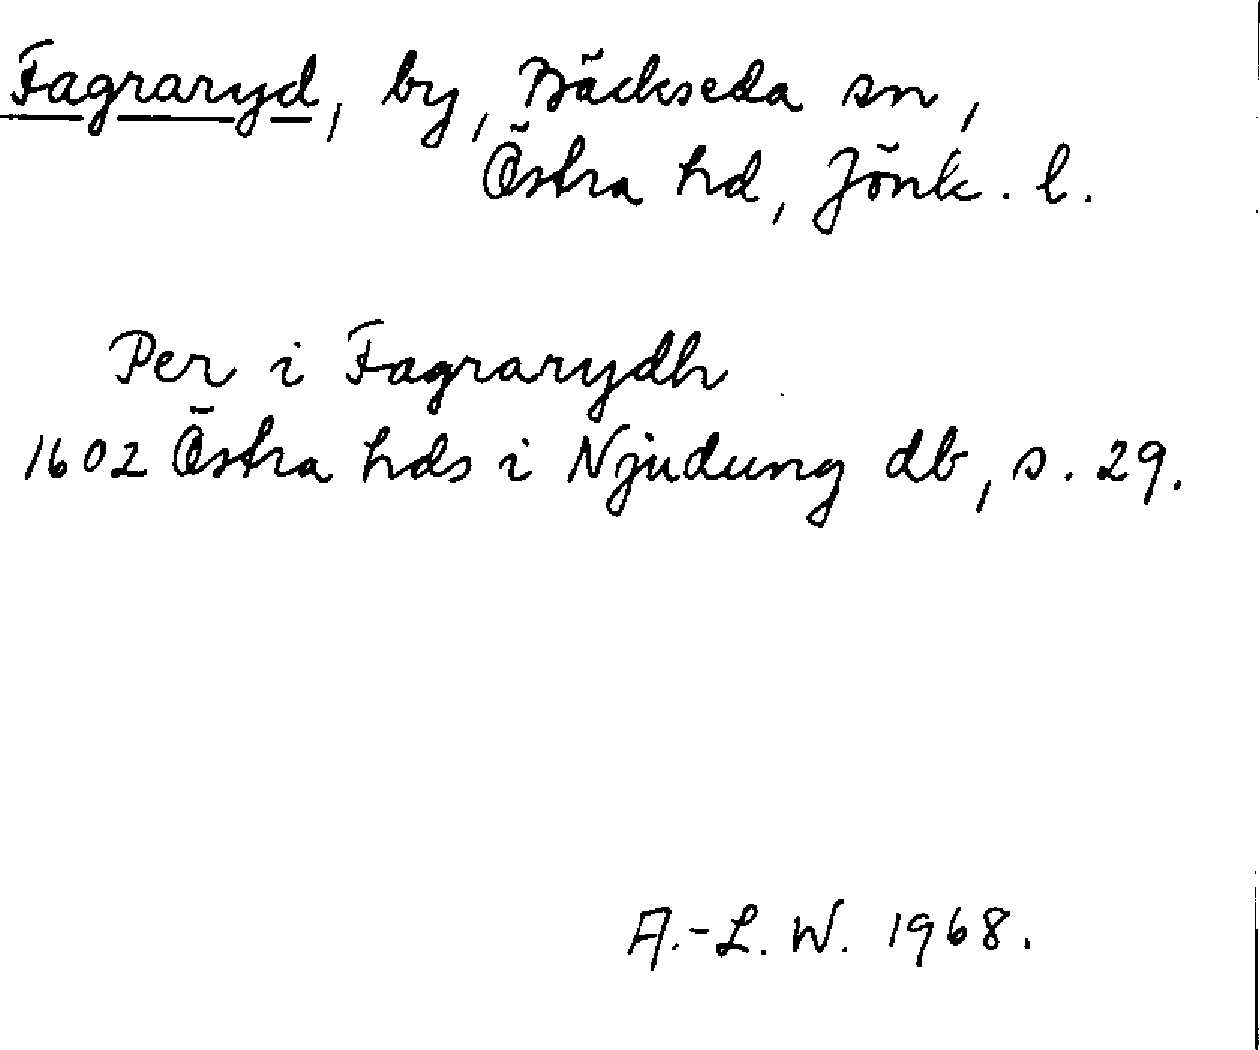 Fagraryd, by, Bäckseda sn,
Östra hd, Jönk. l.
Per i Fagrarydh
1602 Östra hds i Njudung db, s. 29.
A.-L. W. 1968.